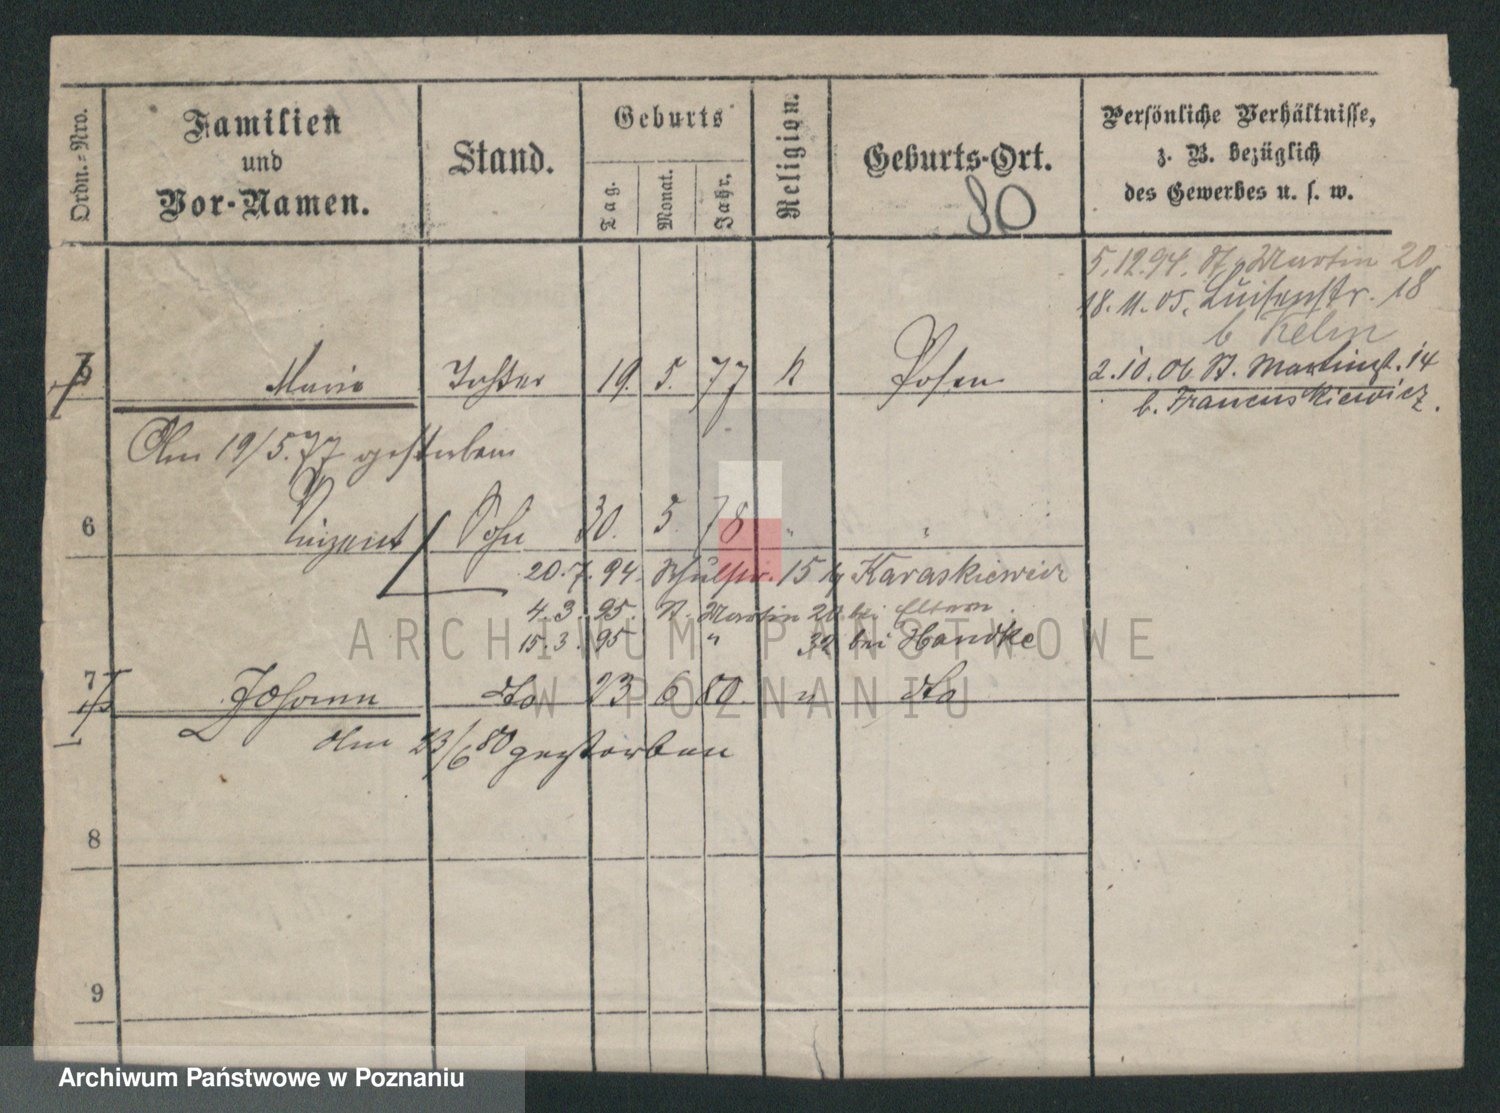 Ordn.=Nro.
Familien
und
Vor-Namen.
Stand.
Geburts
Tag.
Monat.
Jahr.
Religion.
Geburts-Ort.
80
Persönliche Verhältnisse,
z. B. bezüglich
des Gewerbes u. s. w.
5.12.94. St. Martin 20
18.11.05. Luisenstr. 18
b Kelm
5 Marie Tochter 19. 5. 77 k Posen
2.10.06 St. Martinst. 14
b. Francuskiewicz.
Am 19/5.77 gestorben
6 Vinzent Sohn 30. 5 78 " "
20.7.94. Schulstr. 15 by Karaskiewicz
4.3.95. St. Martin 20 bei Eltern.
15.3.95 " 32 bei Handke
7 Johann dto 23 6 80. " dto
Am 23/6 80 gestorben
8
9
ARCHIWUM PAŃSTWOWE
W POZNANIU
Archiwum Państwowe w Poznaniu